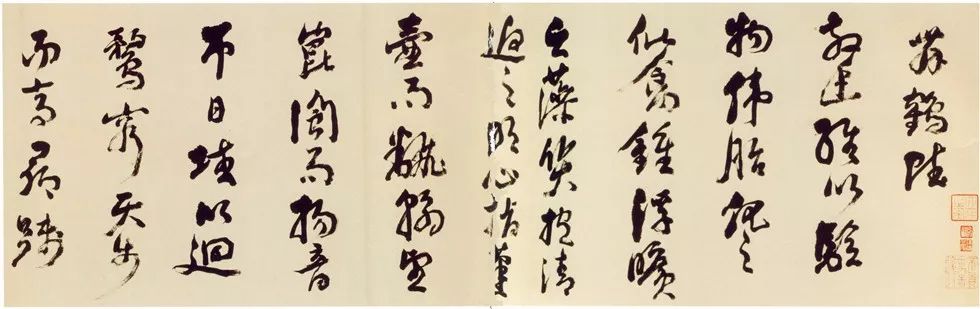 舞鶴賦
散幽經以驗
物偉胎化之
仙禽鍾浮曠
之藻質抱清
迥之明心指蓬
壺而翻翰望
崑閬而揚音
帀日域以迴
騖窮天步
而高尋踐